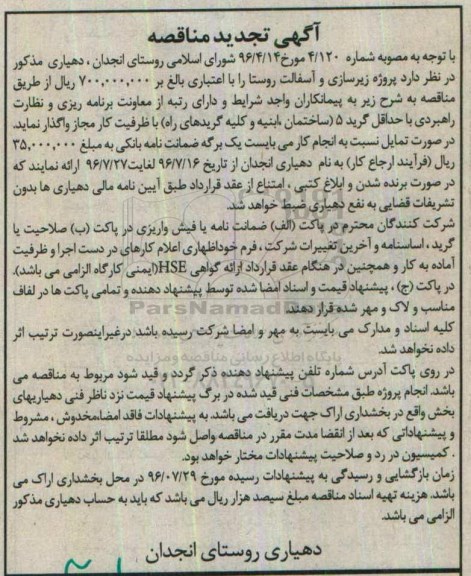 آگهی تجدید مناقصه
با توجه به مصوبه شماره ۴/۱۲۰ مورخ ۹۶/۴/۱۴ شورای اسلامی روستای انجدان ، دهیاری مذکور
در نظر دارد پروژه زیرسازی و آسفالت روستا را با اعتباری بالغ بر ۷۰۰,۰۰۰,۰۰۰ ریال از طریق
مناقصه به شرح زیر به پیمانکاران واجد شرایط و دارای رتبه از معاونت برنامه ریزی و نظارت
راهبردی با حداقل گرید ۵ (ساختمان ،ابنیه و کلیه گریدهای راه) با ظرفیت کار مجاز واگذار نماید.
در صورت تمایل نسبت به انجام کار می بایست یک برگه ضمانت نامه بانکی به مبلغ ۳۵,۰۰۰,۰۰۰
ریال (فرآیند ارجاع کار) به نام دهیاری انجدان از تاریخ ۹۶/۷/۱۶ لغایت ۹۶/۷/۲۷ ارائه نمایند که
در صورت برنده شدن و ابلاغ کتبی ، امتناع از عقد قرارداد طبق آیین نامه مالی دهیاری ها بدون
تشریفات قضایی به نفع دهیاری ضبط خواهد شد.
شرکت کنندگان محترم در پاکت (الف) ضمانت نامه یا فیش واریزی در پاکت (ب) صلاحیت یا
گرید ، اساسنامه و آخرین تغییرات شرکت ، فرم خوداظهاری اعلام کارهای در دست اجرا و ظرفیت
آماده به کار و همچنین در هنگام عقد قرارداد ارائه گواهی HSE(ایمنی کارگاه الزامی می باشد).
در پاکت (ج) ، پیشنهاد قیمت و اسناد امضا شده توسط پیشنهاد دهنده و تمامی پاکت ها در لفاف
مناسب و لاک و مهر شده قرار دهند.
کلیه اسناد و مدارک می بایست به مهر و امضا شرکت رسیده باشد درغیراینصورت ترتیب اثر
داده نخواهد شد.
در روی پاکت آدرس شماره تلفن پیشنهاد دهنده ذکر گردد و قید شود مربوط به مناقصه می
باشد. انجام پروژه طبق مشخصات فنی قید شده در برگ پیشنهاد قیمت نزد ناظر فنی دهیاریهای
بخش واقع در بخشداری اراک جهت دریافت می باشد. به پیشنهادات فاقد امضا،مخدوش ، مشروط
و پیشنهاداتی که بعد از انقضا مدت مقرر در مناقصه واصل شود مطلقا ترتیب اثر داده نخواهد شد
. کمیسیون در رد و صلاحیت پیشنهادات مختار خواهد بود.
زمان بازگشایی و رسیدگی به پیشنهادات رسیده مورخ ۹۶/۰۷/۲۹ در محل بخشداری اراک می
باشد. هزینه تهیه اسناد مناقصه مبلغ سیصد هزار ریال می باشد که باید به حساب دهیاری مذکور
الزامی می باشد.
دهیاری روستای انجدان
ParsNamadData
پایگاه اطلاع رسانی مناقصه و مزایده